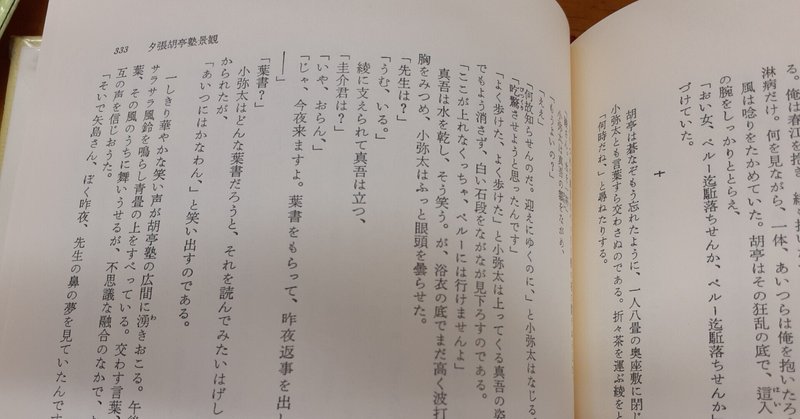 る。俺は春江を抱き、
淋病だけ。何を見ながら、一体、あいつらは俺を抱いたろ
風は唸りをたかめていた。胡亭はその狂乱の底で、這入
の腕をしっかりととらえ、
「おい女、ペルー迄駈落ちせんか、ペルー迄駈落ちせんか
づけていた。
十
胡亭は碁なぞもう忘れたように、一人八畳の奥座敷に閉じ
小弥太とも言葉すら交わさぬのである。折々茶を運ぶ綾を
「何時だね、」と尋ねたりする。
333 夕張胡亭塾景観
「もうよいの?」
「ええ」
「何故知らせんのだ。迎えにゆくのに、」と小弥太はなじる。
「吃驚させようと思ったんです」
「よく歩けた、よく歩けた」と小弥太は上ってくる真吾の姿
でもよう消さず、白い石段をながなが見下ろすのである。
「ここが上れなくっちゃ、ペルーには行けませんよ」
真吾は水を乾し、そう笑う。が、浴衣の底でまだ高く波打
胸をみつめ、小弥太はふっと眼頭を曇らせた。
「先生は?」
「うむ、いる。」
綾に支えられて真吾は立つ、
「圭介君は?」
「いや、おらん、」
「じゃ、今夜来ますよ。葉書をもらって、昨夜返事を出し
――」
「葉書?」
小弥太はどんな葉書だろうと、それを読んでみたいはげし
かられたが、
「あいつにはかなわん、」と笑い出すのである。
一しきり華やかな笑い声が胡亭塾の広間に湧きおこる。午後
サラサラ風鈴を鳴らし青畳の上をすべっている。交わす言葉、
葉、その風のうちに舞いうせるが、不思議な融合のなかで、
互の声を信じおうた。
「そいで矢島さん、ぼく昨夜、先生の鼻の夢を見ていたんです